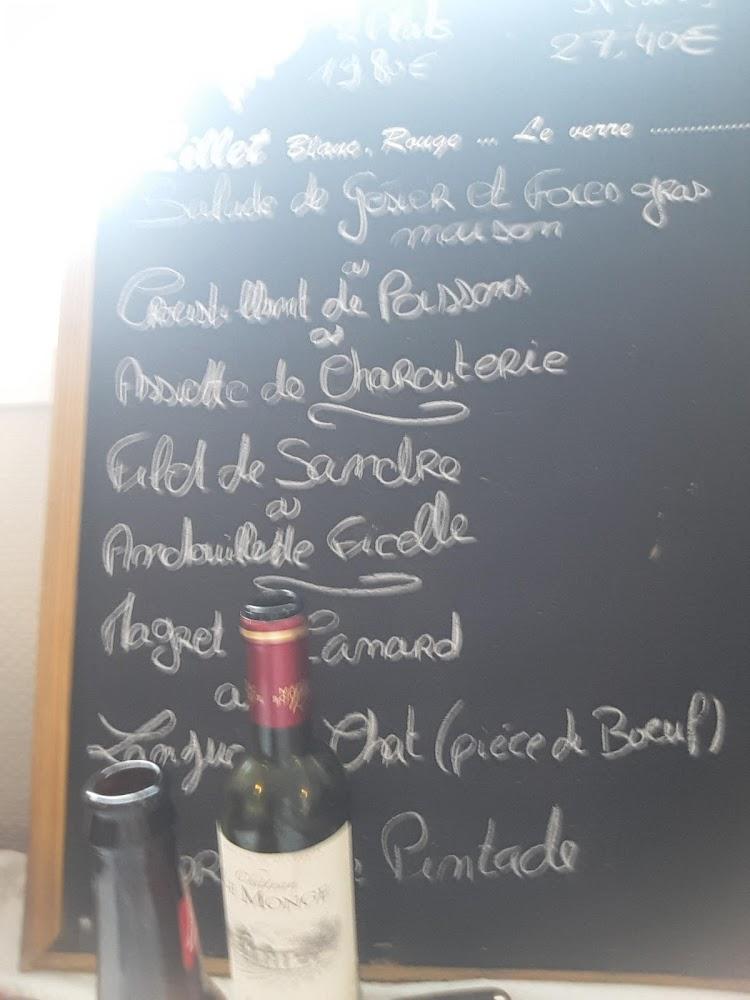 2 Plats
19,80€
27,40€
Lillet Blanc, Rouge ... Le verre ..............
Salade de Gésier et Foies gras
maison
ou
Croustillant de Poissons
ou
Assiette de Charcuterie
Filet de Sandre
ou
Andouillette Ficelle
Magret Canard
Langue Chat (pièce de Boeuf)
Pintade
DE MONGE